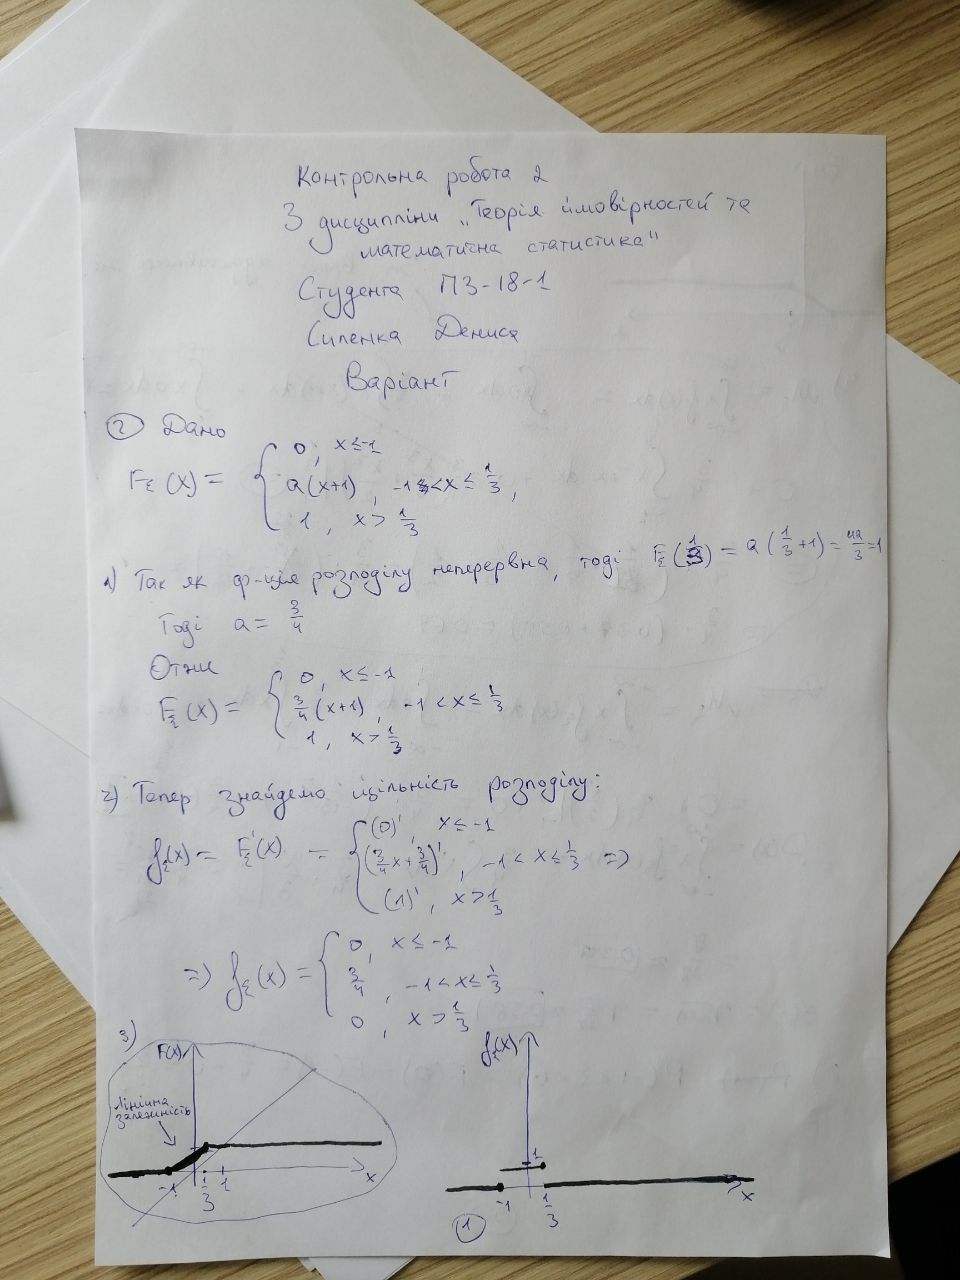 Контрольна робота 2
З дисципліни „Теорія ймовірностей та
математична статистика"
Студента ПЗ-18-1
Силенка Дениса
Варіант
② Дано
Fξ(x) = { 0, x≤-1
a(x+1), -1<x≤ 1/3,
1, x> 1/3
1) Так як ф-ція розподілу неперервна, тоді Fξ(1/3) = a(1/3+1) = 4a/3 =1
Тоді a= 3/4
Отже
Fξ(x) = { 0, x≤-1
3/4(x+1), -1<x≤ 1/3
1, x> 1/3
2) Тепер знайдемо щільність розподілу:
fξ(x) = F'ξ(x) = { (0)', x≤-1
(3/4x+3/4)', -1<x≤ 1/3 =>
(1)', x> 1/3
=> fξ(x) = { 0, x≤-1
3/4, -1<x≤ 1/3
0, x> 1/3
3)
F(x)
Лінійна
залежність
-1 1/3 1 x
fξ(x)
1
-1 1/3 x
①